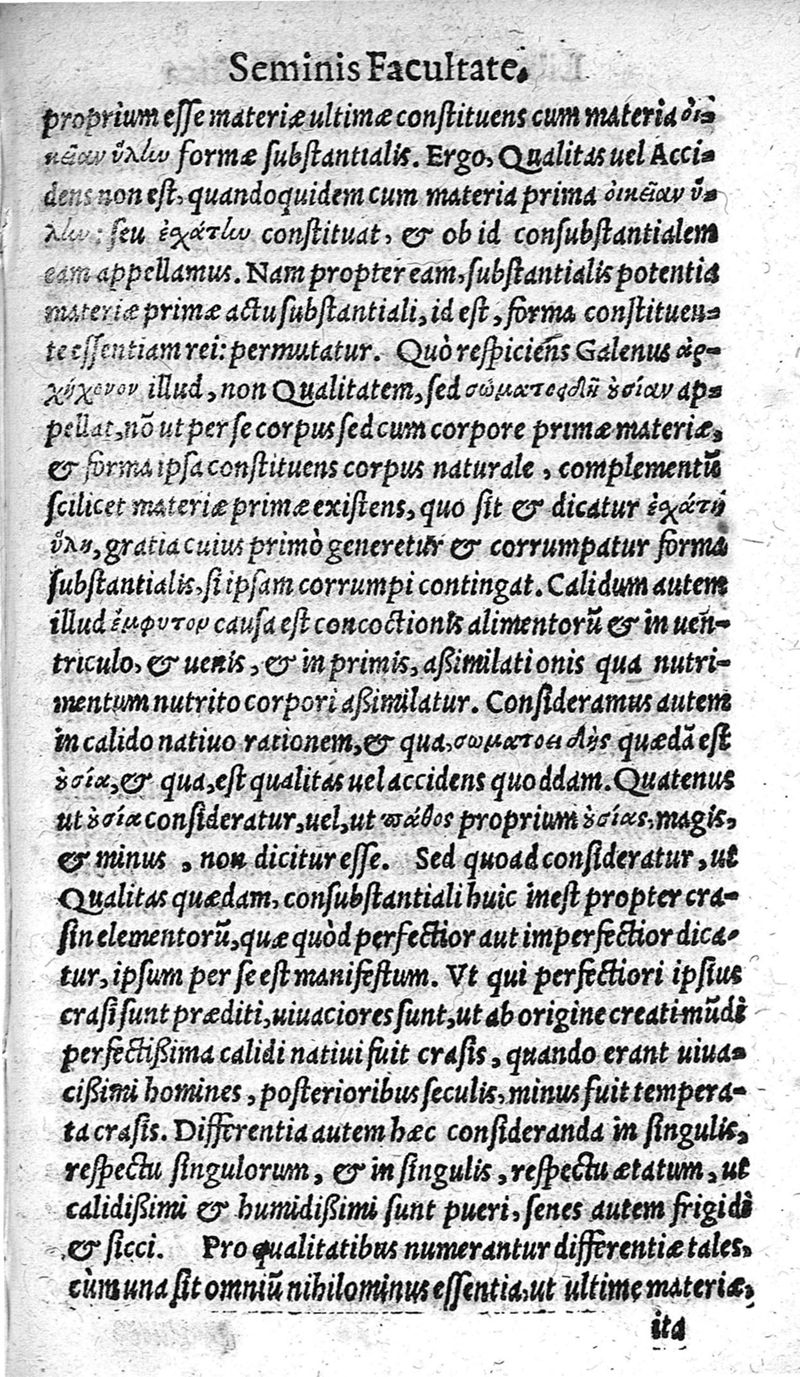 Seminis Facultate.
proprium esse materiæ ultimæ constituens cum materia οἰ-
κείαν ὕλίω formæ substantialis. Ergo, Qualitas uel Acci-
dens non est, quandoquidem cum materia prima οἰκείαν ὕ-
λίω: seu ἐχάτίω constituat, & ob id consubstantialem
eam appellamus. Nam propter eam, substantialis potentia
materiæ primæ actu substantiali, id est, forma constituen-
te essentiam rei: permutatur. Quò respiciẽs Galenus ἀρ-
χύχονον illud, non Qualitatem, sed σώματοςδῆ ȣ̓σίαν ap-
pellat, nõ ut per se corpus sed cum corpore primæ materiæ,
& forma ipsa constituens corpus naturale, complementũ
scilicet materiæ primæ existens, quo sit & dicatur ἐχάτη
ὕλη, gratia cuius primò generetur & corrumpatur forma
substantialis, si ipsam corrumpi contingat. Calidum autem
illud ἔμφυτον causa est concoctionis alimentorũ & in uen-
triculo, & uenis, & in primis, aßimilationis qua nutri-
mentum nutrito corpori aßimilatur. Consideramus autem
in calido natiuo rationem, & qua, σωματοειδὴς quædã est
ȣ̓σία, & qua, est qualitas uel accidens quoddam. Quatenus
ut ȣ̓σία consideratur, uel, ut πάθος proprium ȣ̓σίας, magis,
& minus, non dicitur esse. Sed quoad consideratur, ut
Qualitas quædam, consubstantiali huic inest propter cra-
sin elementorũ, quæ quòd perfectior aut imperfectior dica-
tur, ipsum per se est manifestum. Vt qui perfectiori ipsius
crasi sunt præditi, uiuaciores sunt, ut ab origine creati mũdi
perfectißima calidi natiui fuit crasis, quando erant uiua-
cißimi homines, posterioribus seculis, minus fuit tempera-
ta crasis. Differentia autem hæc consideranda in singulis,
respectu singulorum, & in singulis, respectu ætatum, ut
calidißimi & humidißimi sunt pueri, senes autem frigidi
& sicci. Pro qualitatibus numerantur differentiæ tales,
cùm una sit omniũ nihilominus essentia, ut ultime materiæ,
ita